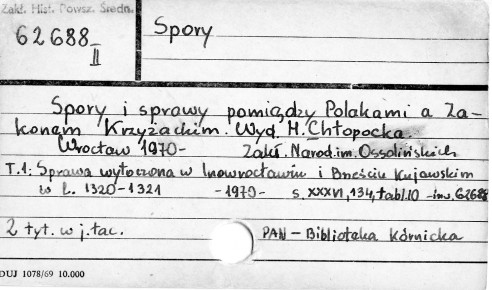 Zakł. Hist. Powsz. Średn.
62688
II
Spory
Spory i sprawy pomiędzy Polakami a Za-
konem Krzyżackim. Wyd. H. Chłopocka.
Wrocław 1970- Zakł. Narod. im. Ossolińskich
T.1: Sprawa wytoczona w Inowrocławiu i Brześciu Kujawskim
w l. 1320-1321 -1970- s. XXXVI, 134, tabl. 10 -inw. 62688
2 tyt. w j. łac. PAN - Biblioteka Kórnicka
DUJ 1078/69 10.000